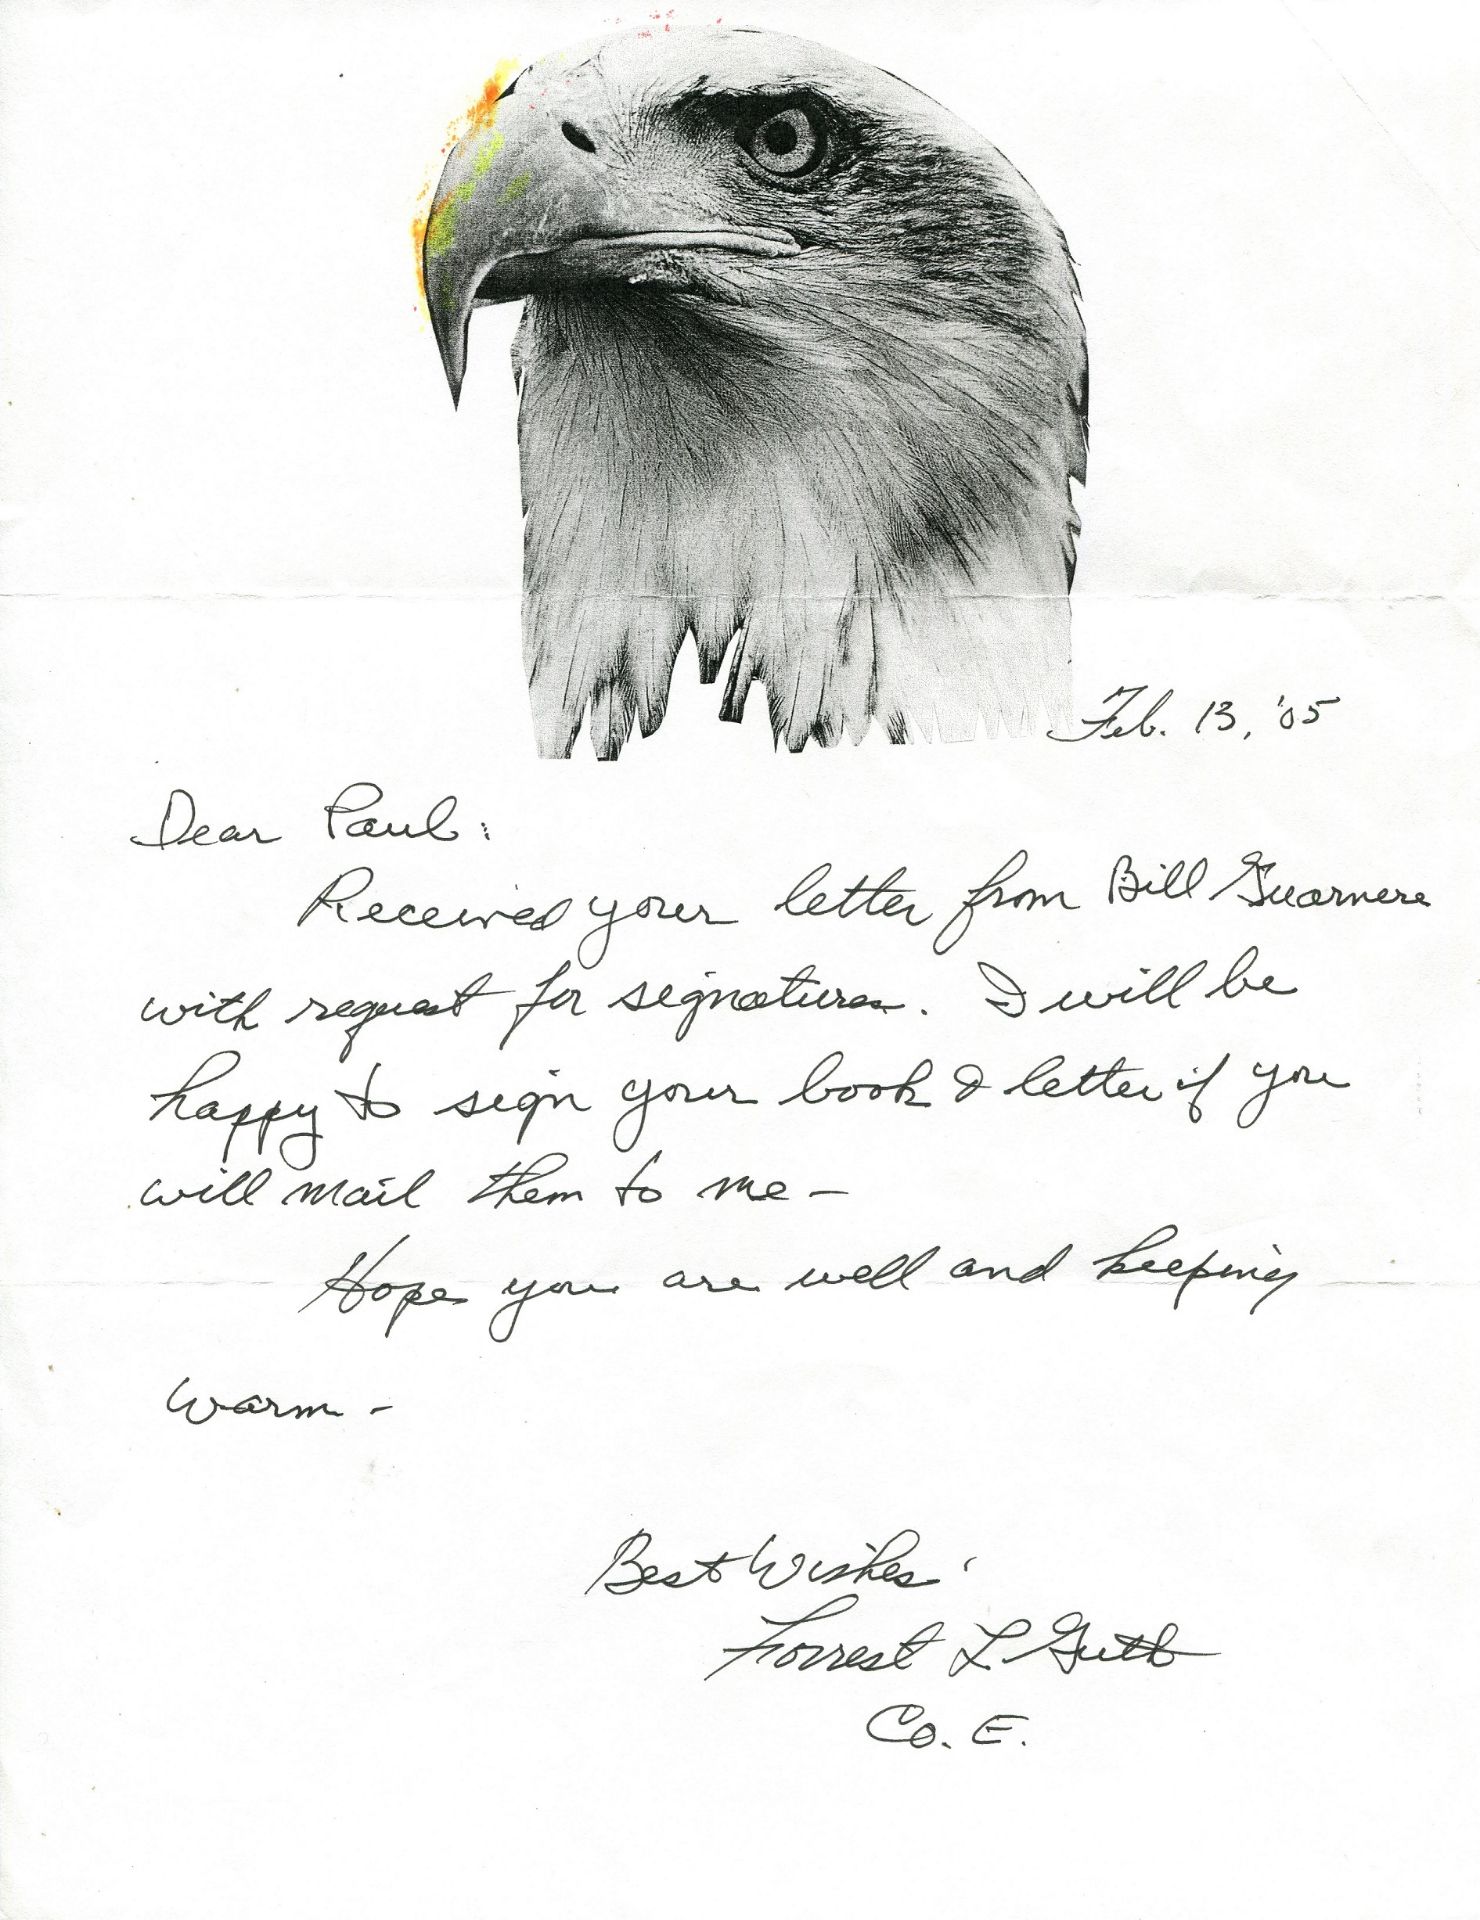 Feb. 13, '05
Dear Paul:
Received your letter from Bill Guarnere
with request for signatures. I will be
happy to sign your book & letter if you
will mail them to me –
Hope you are well and keeping
warm –
Best Wishes,
Forrest L Guth
Co. E.